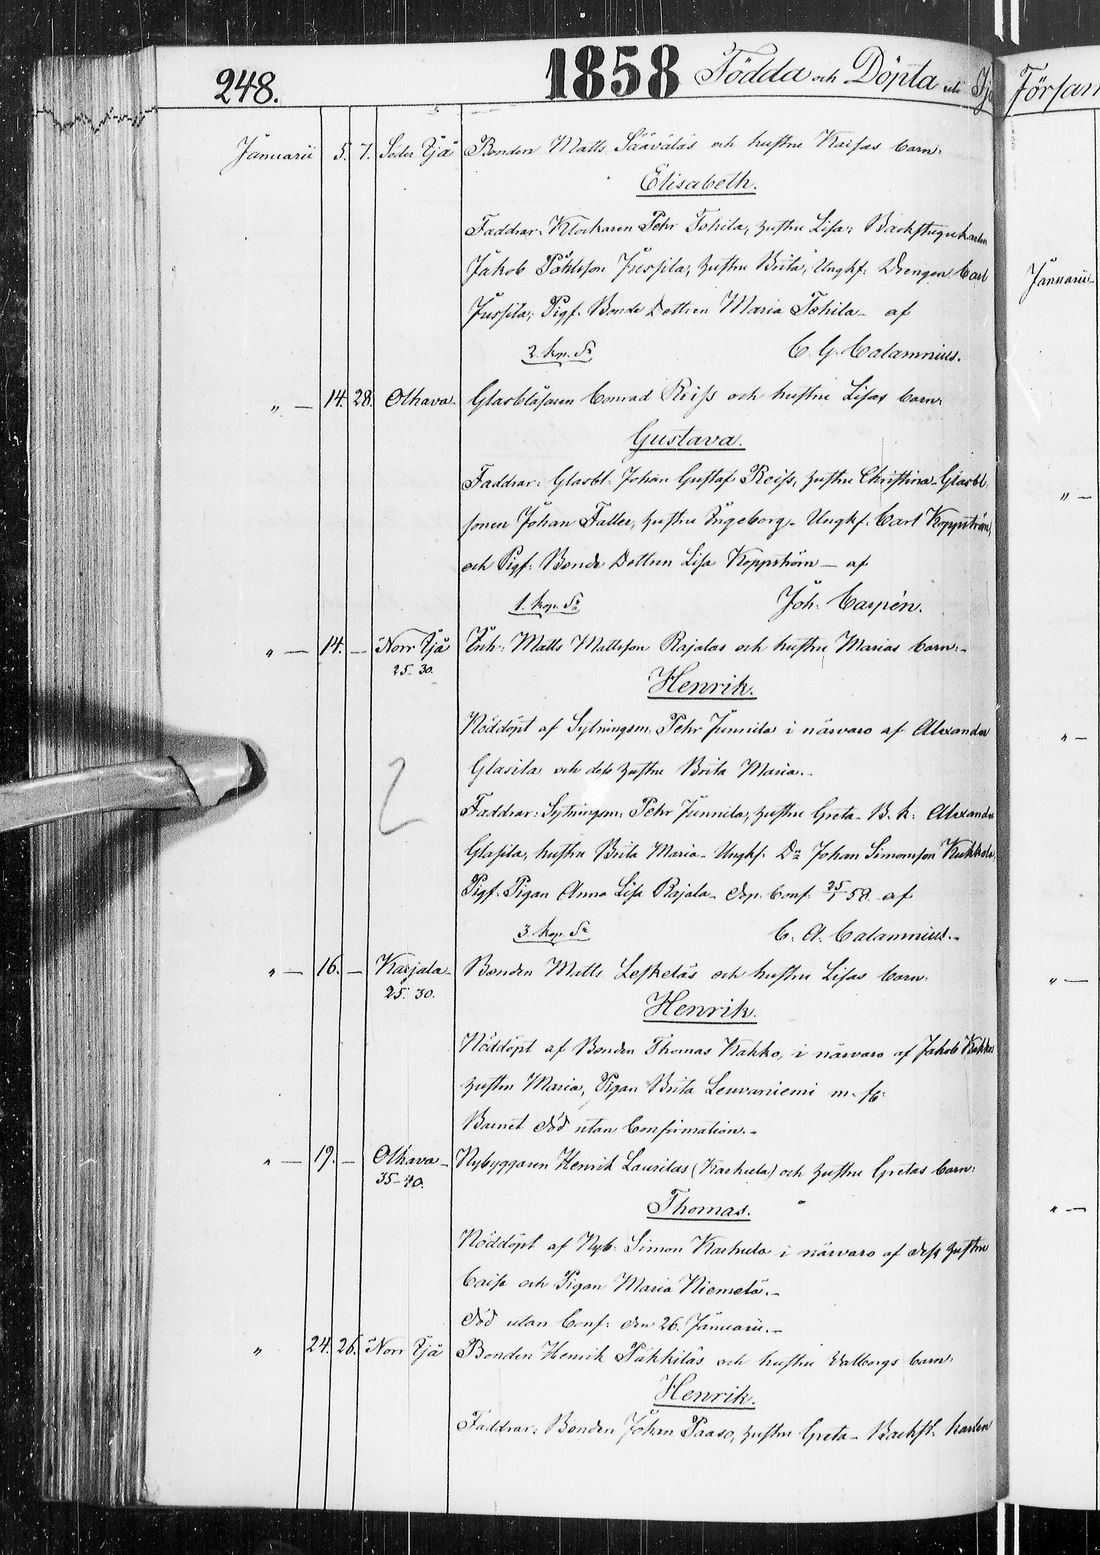 248. 1858 Födda och Döpta uti Ijo Försam
Januarii 5. 7. Söder Ijå Bonden Matts Sääväläs och hustru Kaisas barn:
Elisabeth.
Faddrar: Klockaren Pehr Tohila, hustru Lisa; Backstugukarlen
Jakob Påhlsson Jussila, hustru Brita, Ungk: Drengen Carl
Jussila; Pigf. Bonde Dottren Maria Tohila - af
2 kop. Sr C. G. Calamnius.
" — 14. 28. Olhava Glasblåsaren Conrad Reiss och hustru Lisas barn:
Gustava.
Faddrar: Glasbl: Johan Gustaf Reiss, hustru Christina - Glasbl.
saren Johan Faller, hustru Engeborg - Ungk: Carl Koppström,
och Pigf: Bonde Dottren Lisa Koppström — af
1. kop. Sr Joh: Carpén.
" — 14. — Norr Ijå Inh: Matts Mattsson Rajalas och hustru Marias barn:-
25. 30.
Henrik.
Nöddöpt af Sytningsm: Pehr Junnila i närvaro af Alexander
Glasila och dess hustru Brita Maria.-
Faddrar: Sytningsm: Pehr Junnila, hustru Greta - B. k: Alexander
Glasila, hustru Brita Maria - Ungk: Dr Johan Simonsson Kukkola,
Pigf. Pigan Anna Lisa Rajala - Dop. Conf. 25/1 58. af
3 kop. Sr C. A. Calamnius.-
" — 16. — Karjala Bonden Matts Lesketäs och hustru Lisas barn:
25. 30.
Henrik.
Nöddöpt af Bonden Thomas Kakko, i närvaro af Jakob Kakkos
hustru Maria, Pigan Brita Leuvaniemi m. fl:
Barnet död utan Confirmation.-
" — 19. — Olhava Nybyggaren Henrik Laurilas (Karhula) och hustru Gretas barn:
35-40.
Thomas.
Nöddöpt af Nyb: Simon Karhula i närvaro af dess hustru
Caisa och Pigan Maria Niemelä.-
död utan Conf: den 26. Januarii.-
" 24. 26. Norr Ijå Bonden Henrik Pakkiläs och hustru Valborgs barn:
Henrik.
Faddrar: Bonden Johan Paaso, hustru Greta - Backst. karlen
Januarii
" —
" —
" —
" —